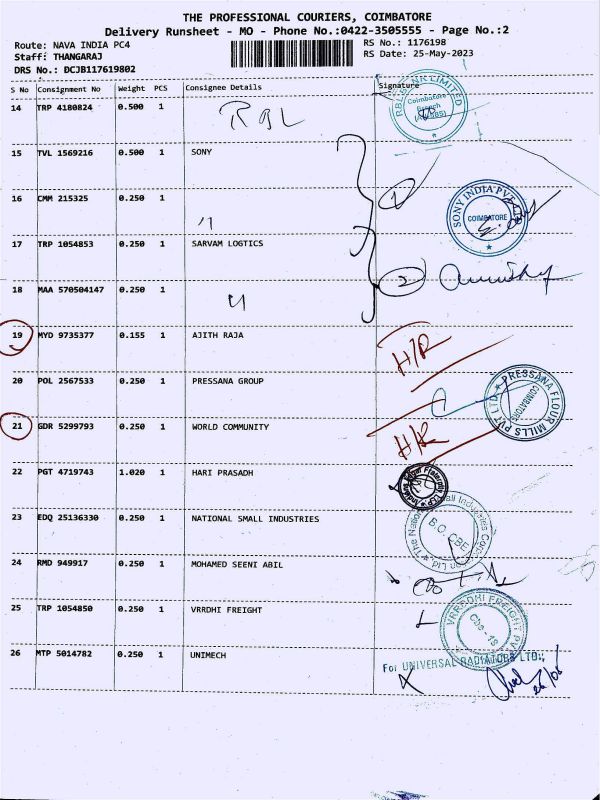 THE PROFESSIONAL COURIERS, COIMBATORE
Delivery Runsheet - MO - Phone No.:0422-3505555 - Page No.:2
Route: NAVA INDIA PC4
RS No.: 1176198
Staff: THANGARAJ
RS Date: 25-May-2023
DRS No.: DCJB117619802
S No Consignment No Weight PCS Consignee Details Signature
14 TRP 4180824 0.500 1 RBL
RBL BANK LIMITED
Coimbatore
Branch
15 TVL 1569216 0.500 1 SONY
16 CMM 215325 0.250 1 "
1
SONY INDIA PVT LTD
COIMBATORE
17 TRP 1054853 0.250 1 SARVAM LOGTICS
18 MAA 570504147 0.250 1 "
2
19 MYD 9735377 0.155 1 AJITH RAJA H/R
20 POL 2567533 0.250 1 PRESSANA GROUP
PRESSANA FLOUR MILLS PVT LTD
COIMBATORE
21 GDR 5299793 0.250 1 WORLD COMMUNITY H/R
22 PGT 4719743 1.020 1 HARI PRASADH
23 EDQ 25136330 0.250 1 NATIONAL SMALL INDUSTRIES
The National Small Industries Corporation Ltd
B.O. CBE
24 RMD 949917 0.250 1 MOHAMED SEENI ABIL
25 TRP 1054850 0.250 1 VRRDHI FREIGHT
VRRDHI FREIGHT PVT
Cbe - 18
26 MTP 5014782 0.250 1 UNIMECH
For UNIVERSAL RADIATORS LTD.,